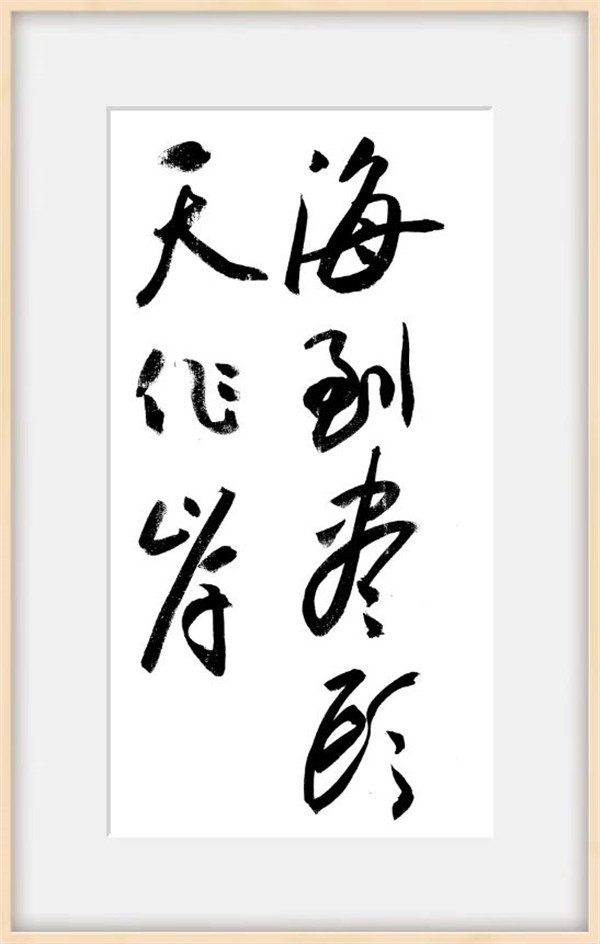 海到尽头
天作岸